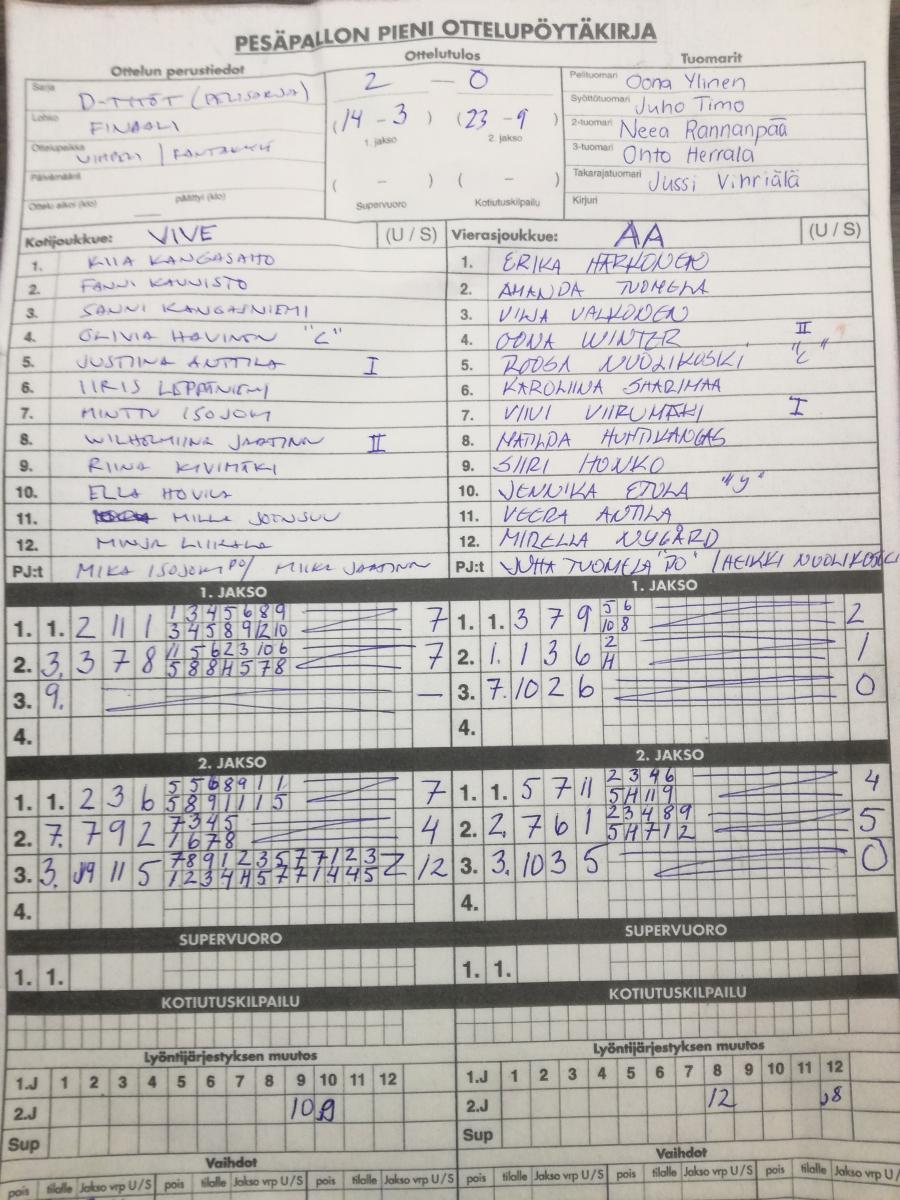 PESÄPALLON PIENI OTTELUPÖYTÄKIRJA
Ottelun perustiedot
Ottelutulos
Tuomarit
Sarja D-TYTÖT (PELISARJA)
Lohko FINAALI
Ottelupaikka VIMPELI /
Päivämäärä
Ottelu alkoi (klo) päättyi (klo)
2 — 0
(14 - 3) (23 - 9)
1. jakso 2. jakso
( - ) ( - )
Supervuoro Kotiutuskilpailu
Pelituomari Oona Ylinen
Syöttötuomari Juho Timo
2-tuomari Neea Rannanpää
3-tuomari Onto Herrala
Takarajatuomari Jussi Vihriälä
Kirjuri
Kotijoukkue: VIVE (U / S)
1. KIIA KANGASAHO
2. FANNI KAUNISTO
3. SANNI KANGASNIEMI
4. OLIVIA HAVINEN "C"
5. JUSTIINA ANTTILA I
6. IIRIS LEPPÄNIEMI
7. MINTTU ISOJOKI
8. WILHELMIINA JAATINEN II
9. RIINA KIVIMÄKI
10. ELLA HOVILA
11. MILLA JOENSUU
12. MINJA LIIKALA
PJ:t MIKA ISOJOKI PO / MIIKA JAATINEN
Vierasjoukkue: AA (U / S)
1. ERIKA HARKONEN
2. AMANDA TUOMELA
3. VILJA VALKONEN
4. OONA WINTER II
5. ROOSA NUOLIKOSKI "C"
6. KAROLIINA SAARIMAA
7. VIIVI VIIRUMÄKI I
8. MATILDA HUHTIKANGAS
9. SIIRI HONKO
10. JENNIKA ETULA "y"
11. VEERA ANTILA
12. MIRELLA NYGÅRD
PJ:t JUHA TUOMELA "PO" / HEIKKI NUOLIKOSKI
1. JAKSO
1. 1. 2 11 1 1 3 4 5 6 8 9 7
3 4 5 8 9 12 10
2. 3. 3 7 8 11 5 6 2 3 10 6 7
5 8 8 H 5 7 8
3. 9. —
4.
1. JAKSO
1. 1. 3 7 9 5 6 2
10 8
2. 1. 1 3 6 2 1
H
3. 7. 10 2 6 0
4.
2. JAKSO
1. 1. 2 3 6 5 5 6 8 9 1 1 7
5 8 9 1 1 1 5
2. 7. 7 9 2 7 3 4 5 4
1 6 7 8
3. 3. 9 11 5 7 8 9 1 2 3 5 7 7 1 2 3 12
1 2 3 4 H 5 7 7 1 4 4 5
4.
2. JAKSO
1. 1. 5 7 11 2 3 4 6 4
5 H 11 9
2. 2. 7 6 1 2 3 4 8 9 5
5 H 7 1 2
3. 3. 10 3 5 0
4.
SUPERVUORO
1. 1.
SUPERVUORO
1. 1.
KOTIUTUSKILPAILU
KOTIUTUSKILPAILU
Lyöntijärjestyksen muutos
1.J 1 2 3 4 5 6 7 8 9 10 11 12
2.J 10 9
Sup
Lyöntijärjestyksen muutos
1.J 1 2 3 4 5 6 7 8 9 10 11 12
2.J 12 8
Sup
Vaihdot
pois tilalle Jakso vrp U / S pois tilalle Jakso vrp U / S pois tilalle Jakso vrp U / S
Vaihdot
pois tilalle Jakso vrp U / S pois tilalle Jakso vrp U / S pois tilalle Jakso vrp U / S